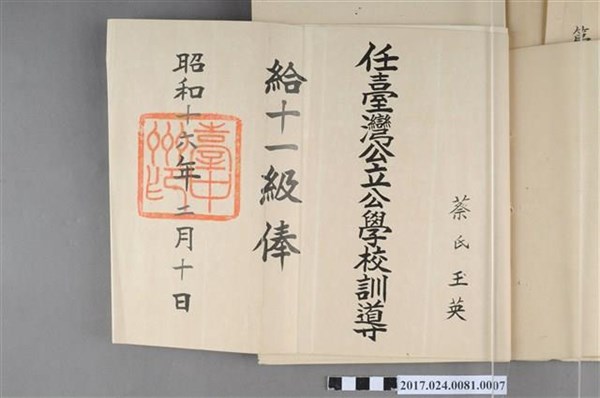 蔡氏玉英
任臺灣公立公學校訓導
給十一級俸
昭和十六年三月十日
臺中州印
2017.024.0081.0007